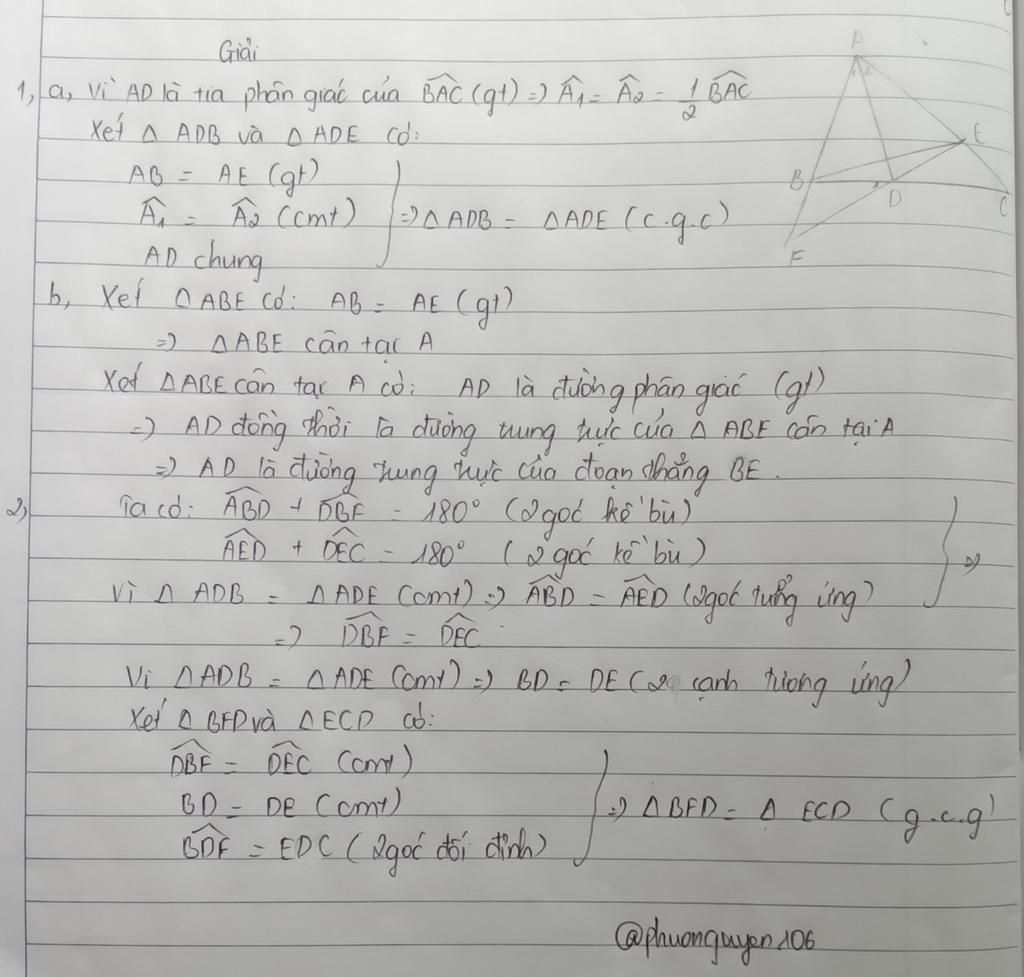 Giải
1, a, Vì AD là tia phân giác của \widehat{BAC} (gt) => \widehat{A_1} = \widehat{A_2} = \frac{1}{2} \widehat{BAC}
Xét Δ ADB và Δ ADE có:
AB = AE (gt)
\widehat{A_1} = \widehat{A_2} (cmt) => Δ ADB = Δ ADE (c.g.c)
AD chung
b, Xét Δ ABE có: AB = AE (gt)
=> Δ ABE cân tại A
Xét Δ ABE cân tại A có: AD là đường phân giác (gt)
=> AD đồng thời là đường trung trực của Δ ABE cân tại A
=> AD là đường trung trực của đoạn thẳng BE.
2, Ta có: \widehat{ABD} + \widehat{DBF} = 180° (2 góc kề bù)
\widehat{AED} + \widehat{DEC} = 180° (2 góc kề bù) =>
Vì Δ ADB = Δ ADE (cmt) => \widehat{ABD} = \widehat{AED} (2 góc tưởng ứng)
=> \widehat{DBF} = \widehat{DEC}
Vì Δ ADB = Δ ADE (cmt) => BD = DE (2 cạnh tương ứng)
Xét Δ BFD và Δ ECD có:
\widehat{DBF} = \widehat{DEC} (cmt)
BD = DE (cmt) => Δ BFD = Δ ECD (g.c.g)
\widehat{BDF} = EDC (2 góc đối đỉnh)
@phuonguyen106
A
1 2
E
B
D
C
F